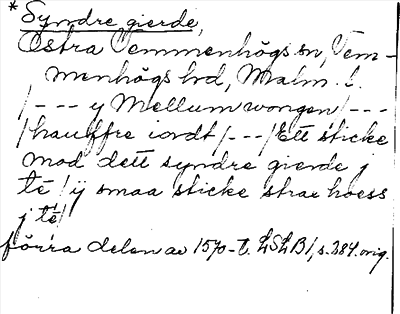 * Syndre gierde,
Östra Vemmenhögs sn, Vem-
menhögs hd, Malm. l.
/ --- y Mellum wongen / ---
/ hauffre iordt / --- / Ett sticke
mod dett syndre gierde j
tē / ij smaa sticke strax hoess
j tē /
förra delen av 1570-t. LSLB 1, s. 284. orig.